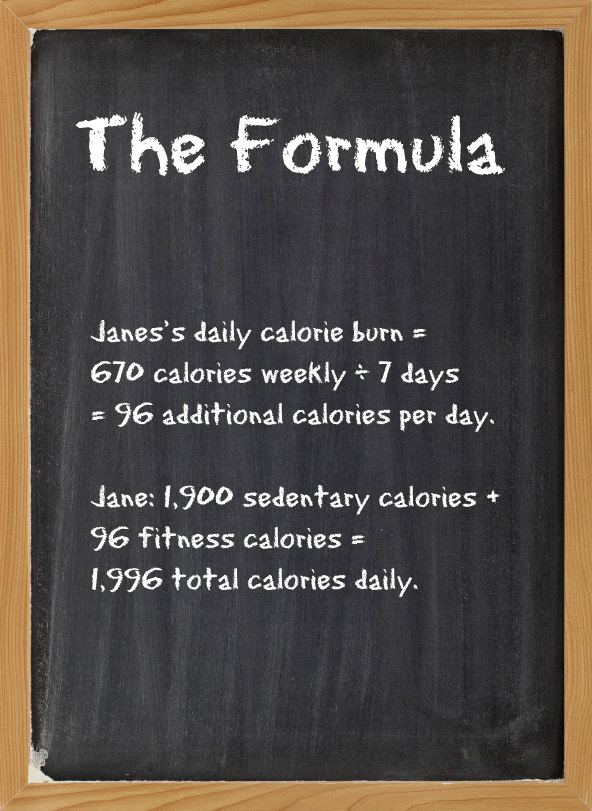 The Formula
Janes's daily calorie burn =
670 calories weekly ÷ 7 days
= 96 additional calories per day.
Jane: 1,900 sedentary calories +
96 fitness calories =
1,996 total calories daily.